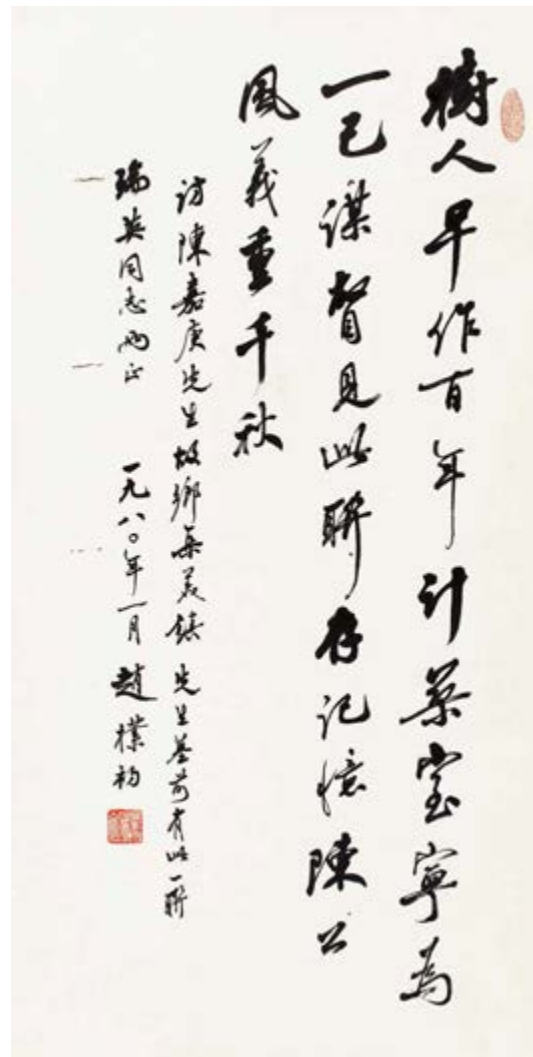 樹人早作百年計築室寧為
一己謀瞥見此聯存記憶陳公
風義重千秋
訪陳嘉庚先生故鄉集美鎮 先生墓前有此一聯
瑞英同志两正 一九八〇年一月 趙樸初